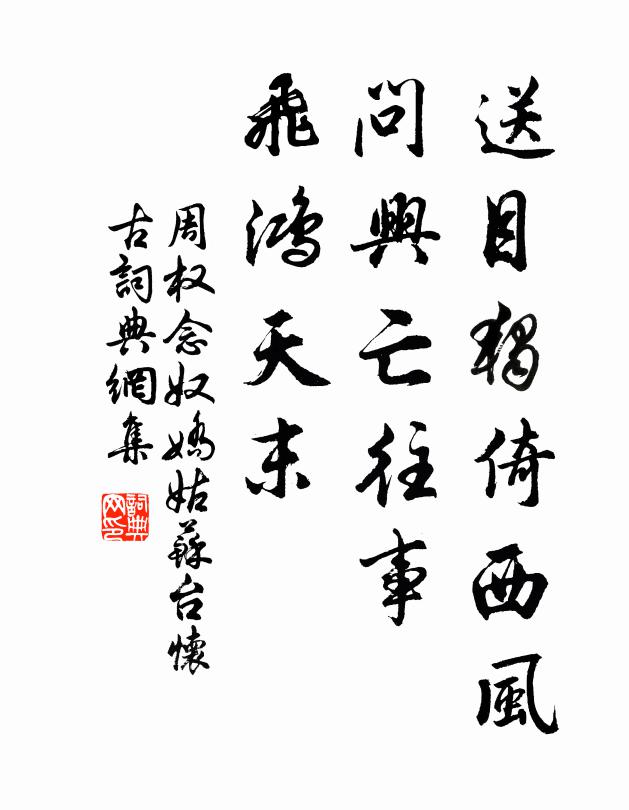 送目独倚西風
問興亡往事
飛鴻天末
周权念奴嬌姑蘇台懷
古詞典網集
詞典
网印